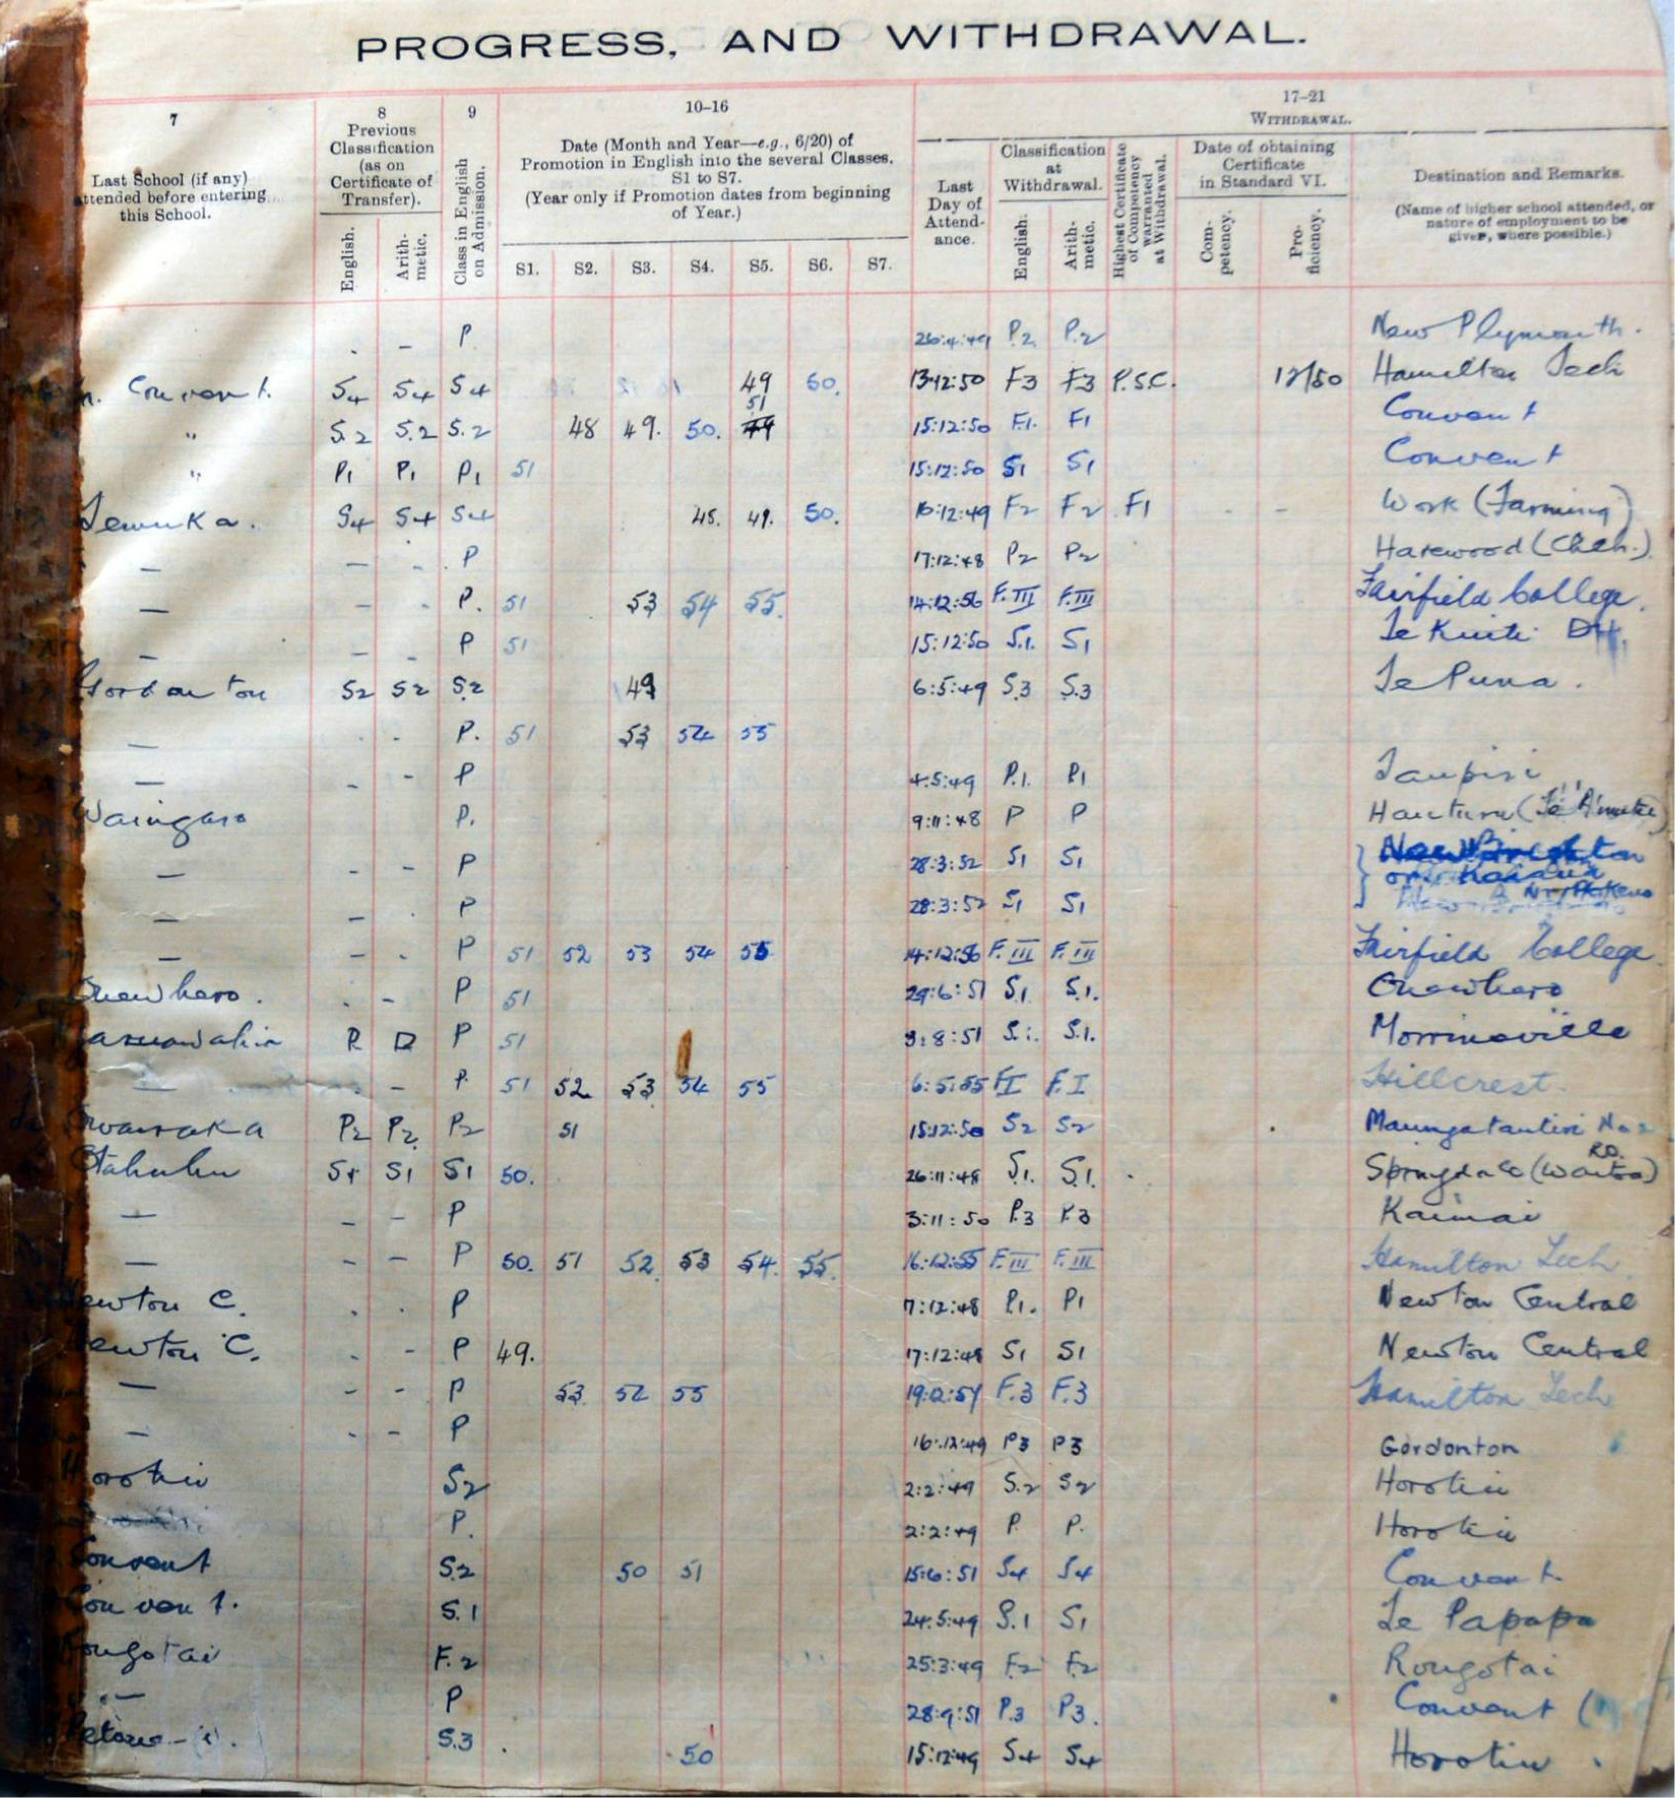 PROGRESS, AND WITHDRAWAL.
7
Last School (if any)
attended before entering
this School.
8
Previous
Classification
(as on
Certificate of
Transfer).
English.
Arith-
metic.
9
Class in English
on Admission.
10–16
Date (Month and Year—e.g., 6/20) of
Promotion in English into the several Classes,
S1 to S7.
(Year only if Promotion dates from beginning
of Year.)
S1. S2. S3. S4. S5. S6. S7.
17–21
WITHDRAWAL.
Last
Day of
Attend-
ance.
Classification
at
Withdrawal.
English.
Arith-
metic.
Highest Certificate
of Competency
warranted
at Withdrawal.
Date of obtaining
Certificate
in Standard VI.
Com-
petency.
Pro-
ficiency.
Destination and Remarks.
(Name of higher school attended, or
nature of employment to be
given, where possible.)
. – P 26:4:49 P.2 P.2 New Plymouth.
Convent. S4 S4 S4 49 50. 13:12:50 F3 F3 P.S.C. 12/50 Hamilton Tech
51
" S.2 S.2 S.2 48 49. 50. 49 15:12:50 F1. F1 Convent
" P1 P1 P1 51 15:12:50 S1 S1 Convent
Temuka. S4 S4 S4 48. 49. 50. 16:12:49 F2 F2 F1 - - Work (Farming)
— — - P 17:12:48 P2 P2 Harewood (Chch.)
— - - P. 51 53 54 55. 14:12:56 F.III F.III Fairfield College.
— — - P 51 15:12:50 S.1. S1 Te Kuiti DH.
Gordonton S2 S2 S.2 49 6:5:49 S.3 S.3 Te Puna.
— - - P. 51 53 54 55
— - - P 4:5:49 P.1. P1 Taupiri
Waingaro P. 9:11:48 P P Hauturu
— - - P 28:3:52 S1 S1
— - - P 28:3:52 S1 S1
— - - P 51 52 53 54 55 14:12:56 F.III F.III Fairfield College
Onewhero. . - P 51 29:6:51 S.1 S.1. Onewhero
P 51 3:8:51 S.1. S.1. Morrinsville
— - P. 51 52 53 54 55 6:5:55 F.I F.I Hillcrest.
P2 P2 P2 51 15:12:50 S2 S2 No 2
RD.
Otahuhu S1 S1 S1 50. 26:11:48 S.1. S.1. Springdale (Waitoa)
— - - P 3:11:50 P.3 P.3 Kaimai
— - - P 50. 51 52. 53 54. 55. 16:12:55 F.III F.III Hamilton Tech.
Newton C. . . P 7:12:48 P.1. P1 Newton Central
Newton C. - - P 49. 17:12:48 S1 S1 Newton Central
— - - P 53 54 55 F.3 F.3 Hamilton Tech
— - - P 16:12:49 P3 P3 Gordonton
Horotiu S2 2:2:49 S.2 S2 Horotiu
P. 2:2:49 P. P. Horotiu
Convent S.2 50 51 15:6:51 S4 S4 Convent.
Convent. S.1 24:5:49 S.1 S1 Te Papapa
Rongotai F.2 25:3:49 F2 F2 Rongotai
" — P 28:9:51 P.3 P3. Convent
Petone S.3 50 15:12:49 S4 S4 Horotiu